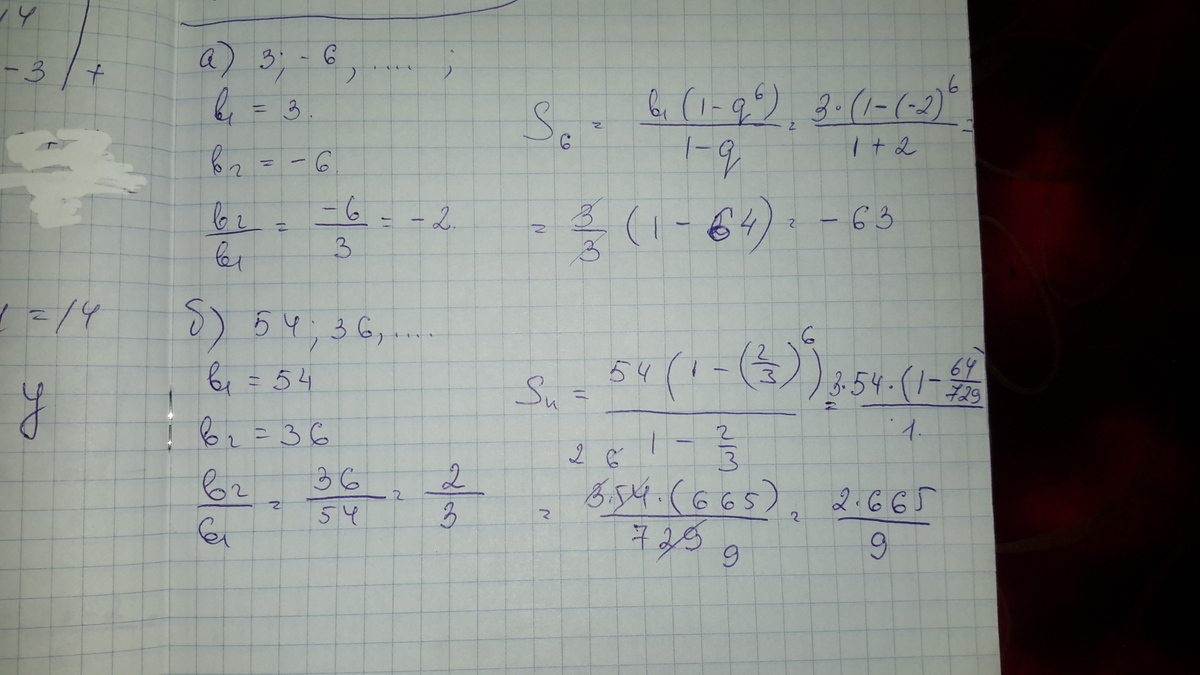 14
-3 | +
а) 3; -6, .... ;
b₁ = 3.
b₂ = -6.
b₂/b₁ = -6/3 = -2.
S₆ = b₁(1-q⁶)/(1-q) = 3·(1-(-2)⁶/(1+2) =
= 3/3 (1-64) = -63
= 14
y
б) 54; 36, ....
b₁ = 54
b₂ = 36
b₂/b₁ = 36/54 = 2/3
Sₙ = 54(1-(2/3)⁶)/(1-2/3) = 3·54·(1-64/729)/1.
2 6
= 3·54·(665)/729 = 2·665/9
9